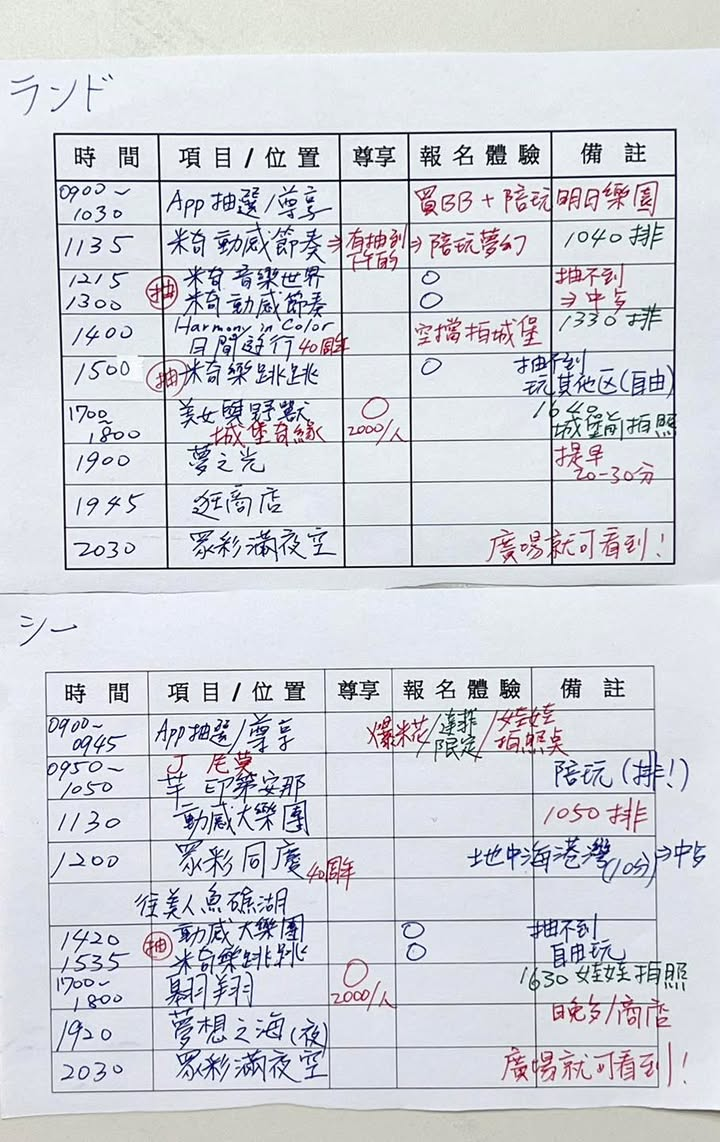 ランド
時間 項目/位置 尊享 報名體驗 備註
0900~
1030 App抽選/尊享 買BB+陪玩明日樂園
1135 米奇動感節奏⇒有抽到下午的⇒陪玩夢幻 1040排
1215 抽 米奇音樂世界 ○ 抽不到
1300 米奇動感節奏 ○ ⇒中午
1400 Harmony in Color 空擋拍城堡 1330排
日間遊行 40周年
1500 抽 米奇樂跳跳 ○ 抽不到
玩其他区(自由)
1700~ 美女與野獸 ○ 1640
1800 城堡奇緣 2000/人 城堡前拍照
1900 夢之光 提早
20-30分
1945 逛商店
2030 眾彩滿夜空 廣場就可看到!
シー
時間 項目/位置 尊享 報名體驗 備註
0900~
0945 App抽選/尊享 爆米花/達菲限定/娃娃拍照点
0950~ J 尼莫
1050 印第安那 陪玩(排!)
1130 動感大樂團 1050排
1200 眾彩同慶 40周年 地中海港灣(10分)⇒中午
往美人魚礁湖
1420 抽 動感大樂團 ○ 抽不到
1535 米奇樂跳跳 ○ 自由玩
1700~ 翱翔 ○ 1630娃娃拍照
1800 2000/人
日晚多/商店
1920 夢想之海(夜)
2030 眾彩滿夜空 廣場就可看到!